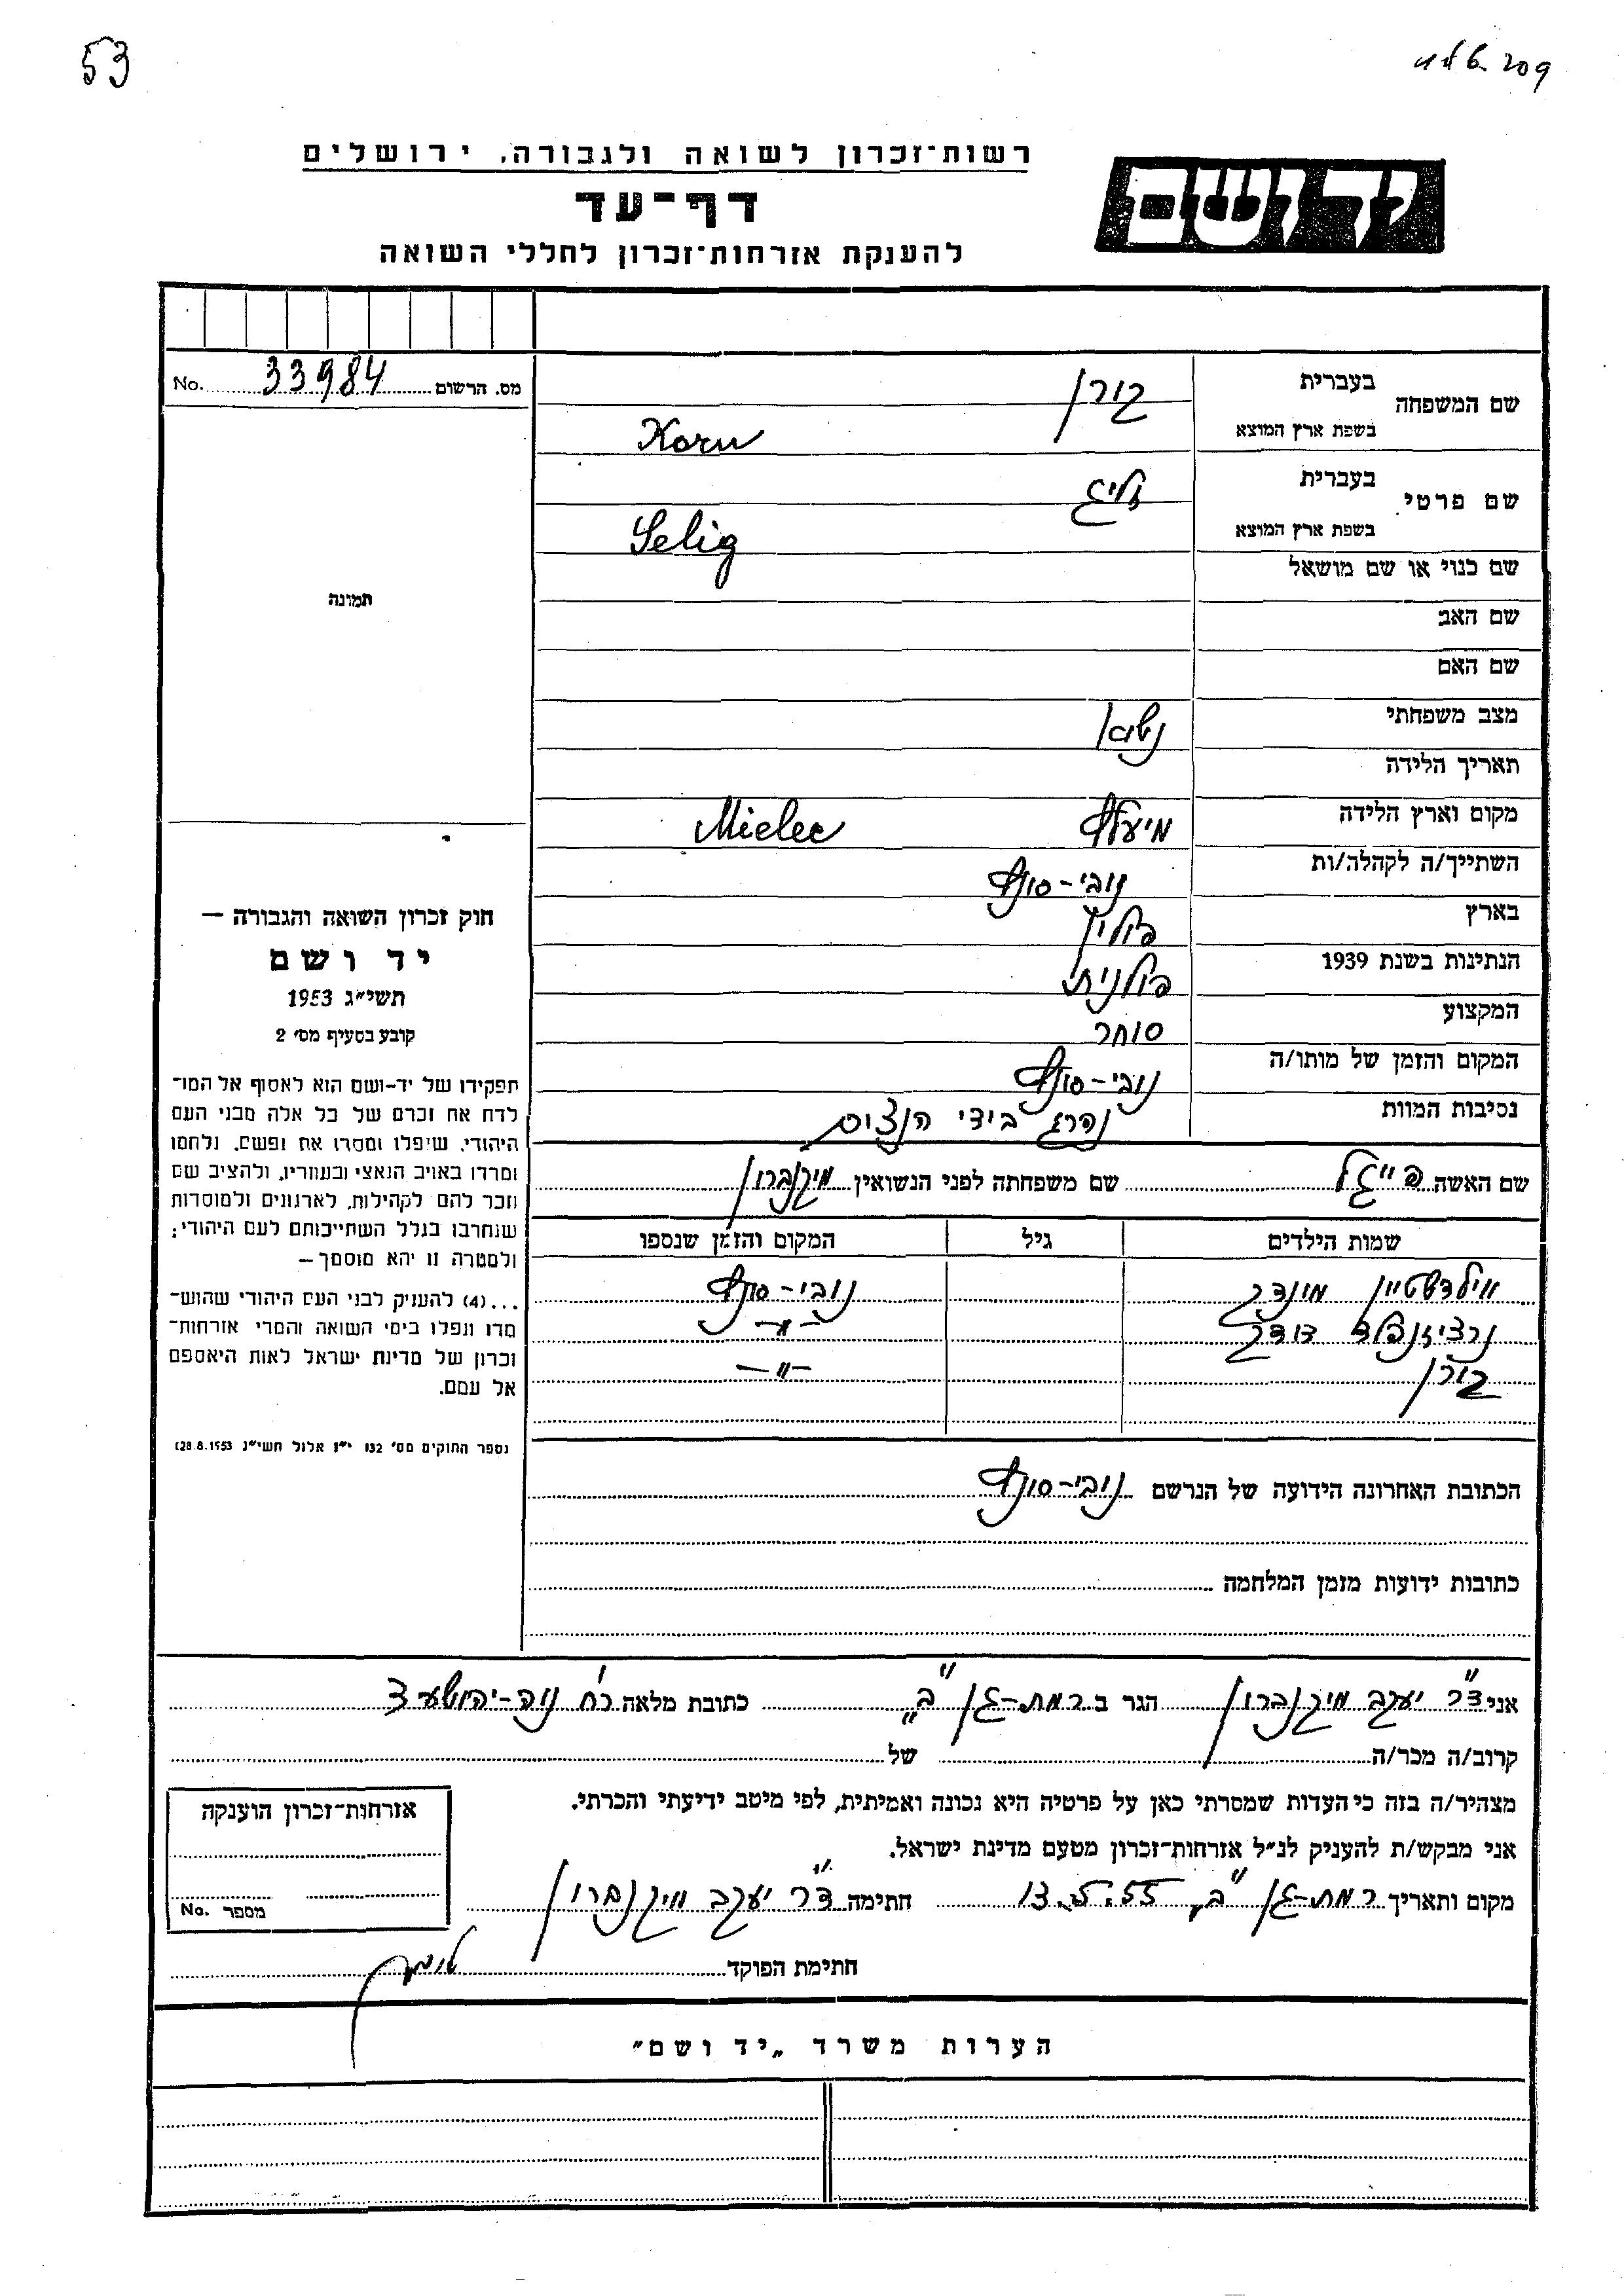 53
יד ושם
רשות־זכרון לשואה ולגבורה, ירושלים
דף־עד
להענקת אזרחות־זכרון לחללי השואה
מס. הרשום 33984 No.
שם המשפחה בעברית קורן
בשפת ארץ המוצא Korn
שם פרטי בעברית זליג
בשפת ארץ המוצא Selig
שם כנוי או שם מושאל
שם האב
שם האם
מצב משפחתי נשוי
תאריך הלידה
מקום וארץ הלידה מיעלץ Mielec
השתייך/ה לקהלה/ות נובי-סונץ
בארץ פולין
הנתינות בשנת 1939 פולנית
המקצוע סוחר
המקום והזמן של מותו/ה נובי-סונץ
נסיבות המוות נהרג בידי הנצים
שם האשה פייגל שם משפחתה לפני הנשואין
שמות הילדים גיל המקום והזמן שנספו
מונדק נובי-סונץ
דודק -"-
קורן -"-
הכתובת האחרונה הידועה של הנרשם נובי-סונץ
כתובות ידועות מזמן המלחמה
תמונה
חוק זכרון השואה והגבורה —
יד ושם
תשי״ג 1953
קובע בסעיף מס׳ 2
תפקידו של יד-ושם הוא לאסוף אל המו־
לדת את זכרם של כל אלה מבני העם
היהודי, שיפלו ומסרו את נפשם, נלחמו
ומרדו באויב הנאצי ובעוזריו, ולהציב שם
וזכר להם לקהילות, לארגונים ולמוסדות
שנחרבו בגלל השתייכותם לעם היהודי;
ולמטרה זו יהא מוסמך —
...(4) להעניק לבני העם היהודי שהוש־
מדו ונפלו בימי השואה והמרי אזרחות־
זכרון של מדינת ישראל לאות היאספם
אל עמם.
(ספר החוקים מס׳ 132 י״ז אלול תשי״ג 28.8.1953)
אני ד"ר יעקב הגר ב רמת-גן "ב" כתובת מלאה רח' נוה-יהושע 3
קרוב/ה מכר/ה של
מצהיר/ה בזה כי העדות שמסרתי כאן על פרטיה היא נכונה ואמיתית, לפי מיטב ידיעתי והכרתי.
אני מבקש/ת להעניק לנ״ל אזרחות־זכרון מטעם מדינת ישראל.
מקום ותאריך רמת-גן "ב, 13.5.55 חתימה ד"ר יעקב
חתימת הפוקד
אזרחות־זכרון הוענקה
מספר No.
הערות משרד „יד ושם״